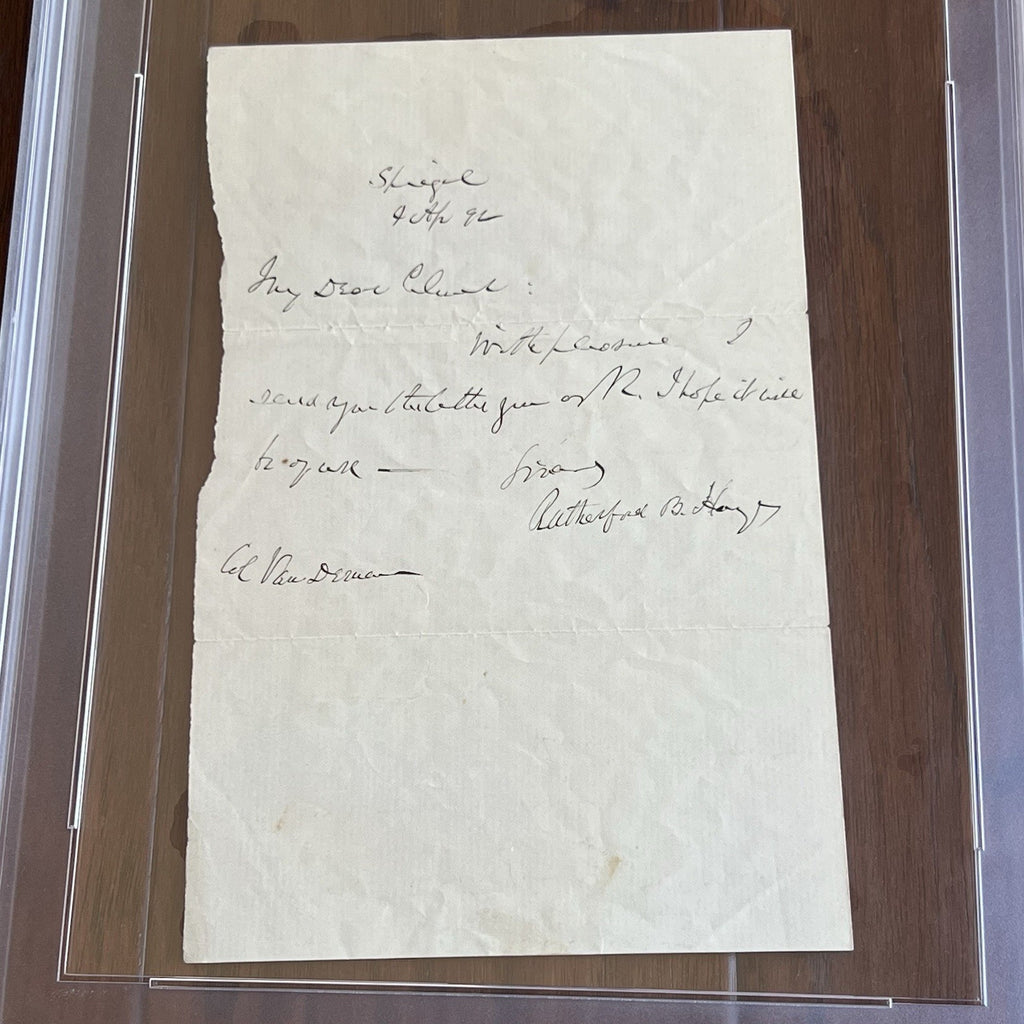 Spiegel
9 Ap 92
My Dear Colonel :
With pleasure I
send you the letter you ask. I hope it will
be of use —
Sincerely
Rutherford B. Hayes
Col Van Deman